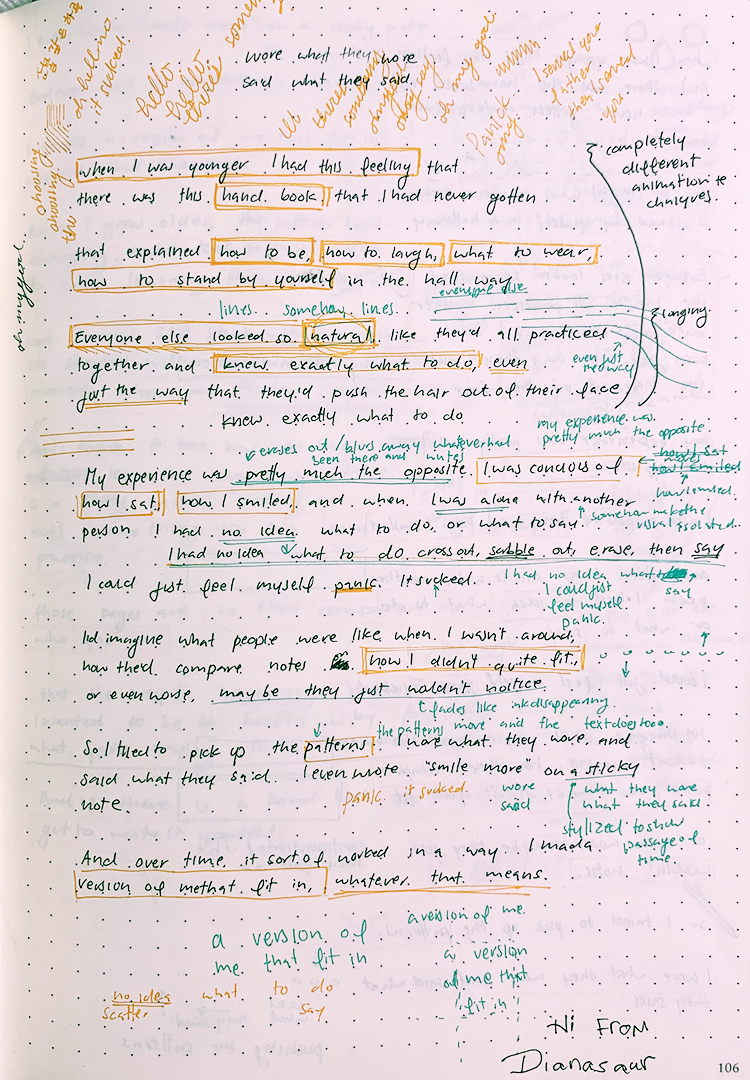 oh hell no
it sucked.
hello
hello
there
wore what they wore
said what they said
oh my god
panic
choosing
choosing
the
oh my god
when I was younger I had this feeling that
there was this hand book that I had never gotten
completely
different
animation te
chniques.
that explained how to be, how to laugh, what to wear,
how to stand by yourself in the hall way
lines somehow lines
everyone else
longing
Everyone else looked so natural, like they'd all practiced
together and knew exactly what to do, even
even just
the way
just the way that they'd push the hair out of their face
knew exactly what to do
my experience was
pretty much the opposite
erases out / blurs away whatever had
been there and writes
My experience was pretty much the opposite. I was concious of
how I sat
how I smiled
how I sat, how I smiled, and when I was alone with another
person I had no idea what to do or what to say.
somehow make the
visual isolated
I had no idea what to do cross out, scribble out, erase, then say
I could just feel myself panic. It sucked.
I had no idea what to
say
I could just
feel myself
panic.
I'd imagine what people were like when I wasn't around,
how they'd compare notes how I didn't quite fit,
or even worse, maybe they just wouldn't notice.
fades like ink disappearing
the patterns move and the text does too.
So I tried to pick up the patterns. I wore what they wore, and
said what they said. I even wrote "smile more" on a sticky
note.
panic it sucked.
wore
said
what they wore
what they said
stylized to show
passage of
time.
And over time, it sort of worked in a way. I made a
version of me that fit in, whatever that means.
a version of
me that fit in
a version of me
a version
of me that
fit in
no idea what to do
scatter say
Hi From
Dianasaur
106